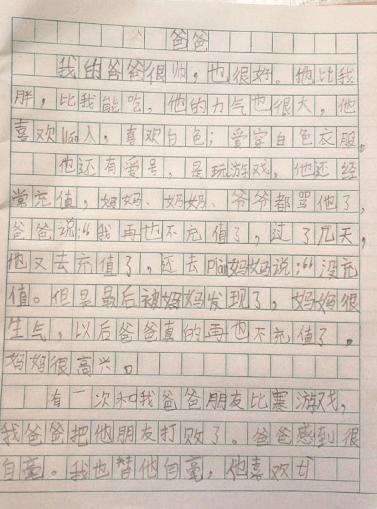 爸爸
我的爸爸很帅，也很好。他比我
胖，比我能吃。他的力气也很大，他
喜欢lian人，喜欢白色；爱穿白色衣服。
他还有爱号，是玩游戏，他还经
常充值，妈妈、奶奶、爷爷都骂他了，
爸爸说：“我再也不充值了，过了几天，
他又去充值了，还去pian妈妈说：“没充
值。但是最后被妈妈发现了，妈妈很
生气，以后爸爸真的再也不充值了。
妈妈很高兴。
有一次和我爸爸朋友比赛游戏，
我爸爸把他朋友打败了。爸爸感到很
自毫。我也替他自毫，他喜欢